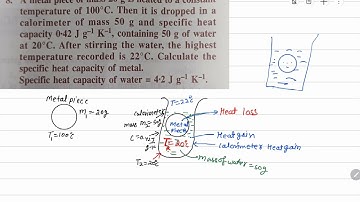 8. A metal piece of mass 20 g is heated to a constant
temperature of 100°C. Then it is dropped in a
calorimeter of mass 50 g and specific heat
capacity 0·42 J g⁻¹ K⁻¹, containing 50 g of water
at 20°C. After stirring the water, the highest
temperature recorded is 22°C. Calculate the
specific heat capacity of metal.
Specific heat capacity of water = 4·2 J g⁻¹ K⁻¹.
Metal piece
m₁ = 20g
T₁ = 100°C
T = 22°C
calorimeter
mass m₂ = 50g
T₂ = 20°C
Metal
piece
T₂ = 20°C
Heat loss
Heat gain
calorimeter Heat gain
Mass of water = 50g